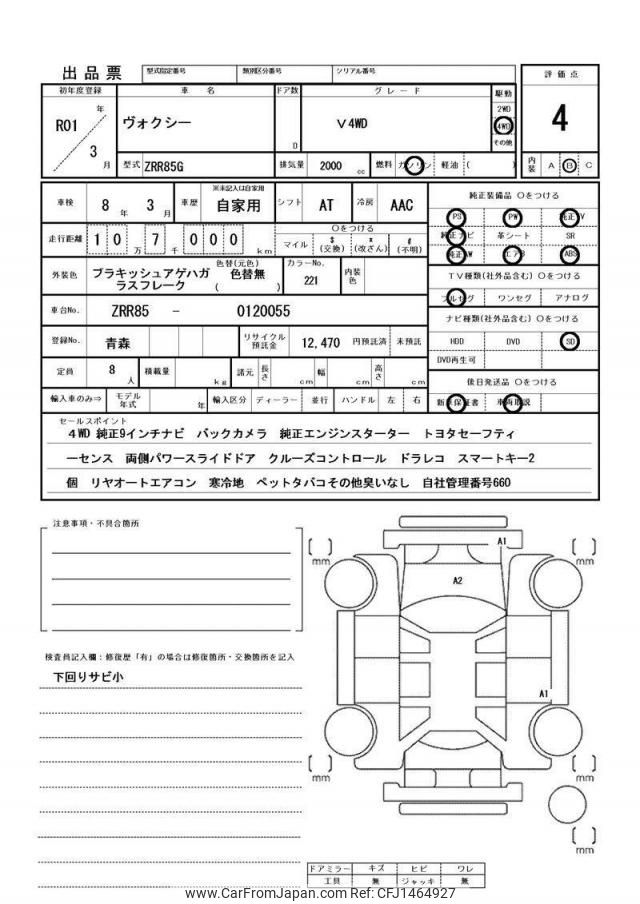 出品票 型式指定番号 類別区分番号 シリアル番号
初年度登録 車 名 ドア数 グ レ ー ド 駆動 評 価 点
R01 年 ヴォクシー V 4WD 2WD 4
4WD
3 月 D その他
型式 ZRR85G 排気量 2000 cc 燃料 ガソリン 軽油 ( ) 内装 A B C
※未記入は自家用 純正装備品 〇をつける
車検 8 年 3 月 車歴 自家用 シフト AT 冷房 AAC PS PW 純正TV
走行距離 1 0 万 7 千 0 0 0 km 〇をつける 純正ナビ 革シート SR
マイル $ (交換) * (改ざん) # (不明) 純正AW エアB ABS
外装色 ブラキッシュアゲハガラスフレーク 色替(元色) 色替無 ( ) カラーNo. 221 内装色 TV種類(社外品含む) 〇をつける
フルセグ ワンセグ アナログ
車台No. ZRR85 - 0120055 ナビ種類(社外品含む) 〇をつける
登録No. 青森 リサイクル預託金 12,470 円預託済 未預託 HDD DVD SD
DVD再生可
定員 8 人 積載量 kg 諸元 長さ cm 幅 cm 高さ cm 後日発送品 〇をつける
輸入車のみ⇒ モデル年式 年 輸入区分 ディーラー 並行 ハンドル 左 右 新車保証書 車両取説
セールスポイント
4WD 純正9インチナビ バックカメラ 純正エンジンスターター トヨタセーフティ
ーセンス 両側パワースライドドア クルーズコントロール ドラレコ スマートキー2
個 リヤオートエアコン 寒冷地 ペットタバコその他臭いなし 自社管理番号660
注意事項・不具合箇所
A1
mm mm
A2
検査員記入欄:修復歴「有」の場合は修復箇所・交換箇所を記入
下回りサビ小
A1
mm mm
mm
ドアミラー キズ ヒビ ワレ
工具 無 ジャッキ 無
www.CarFromJapan.com Ref: CFJ1464927